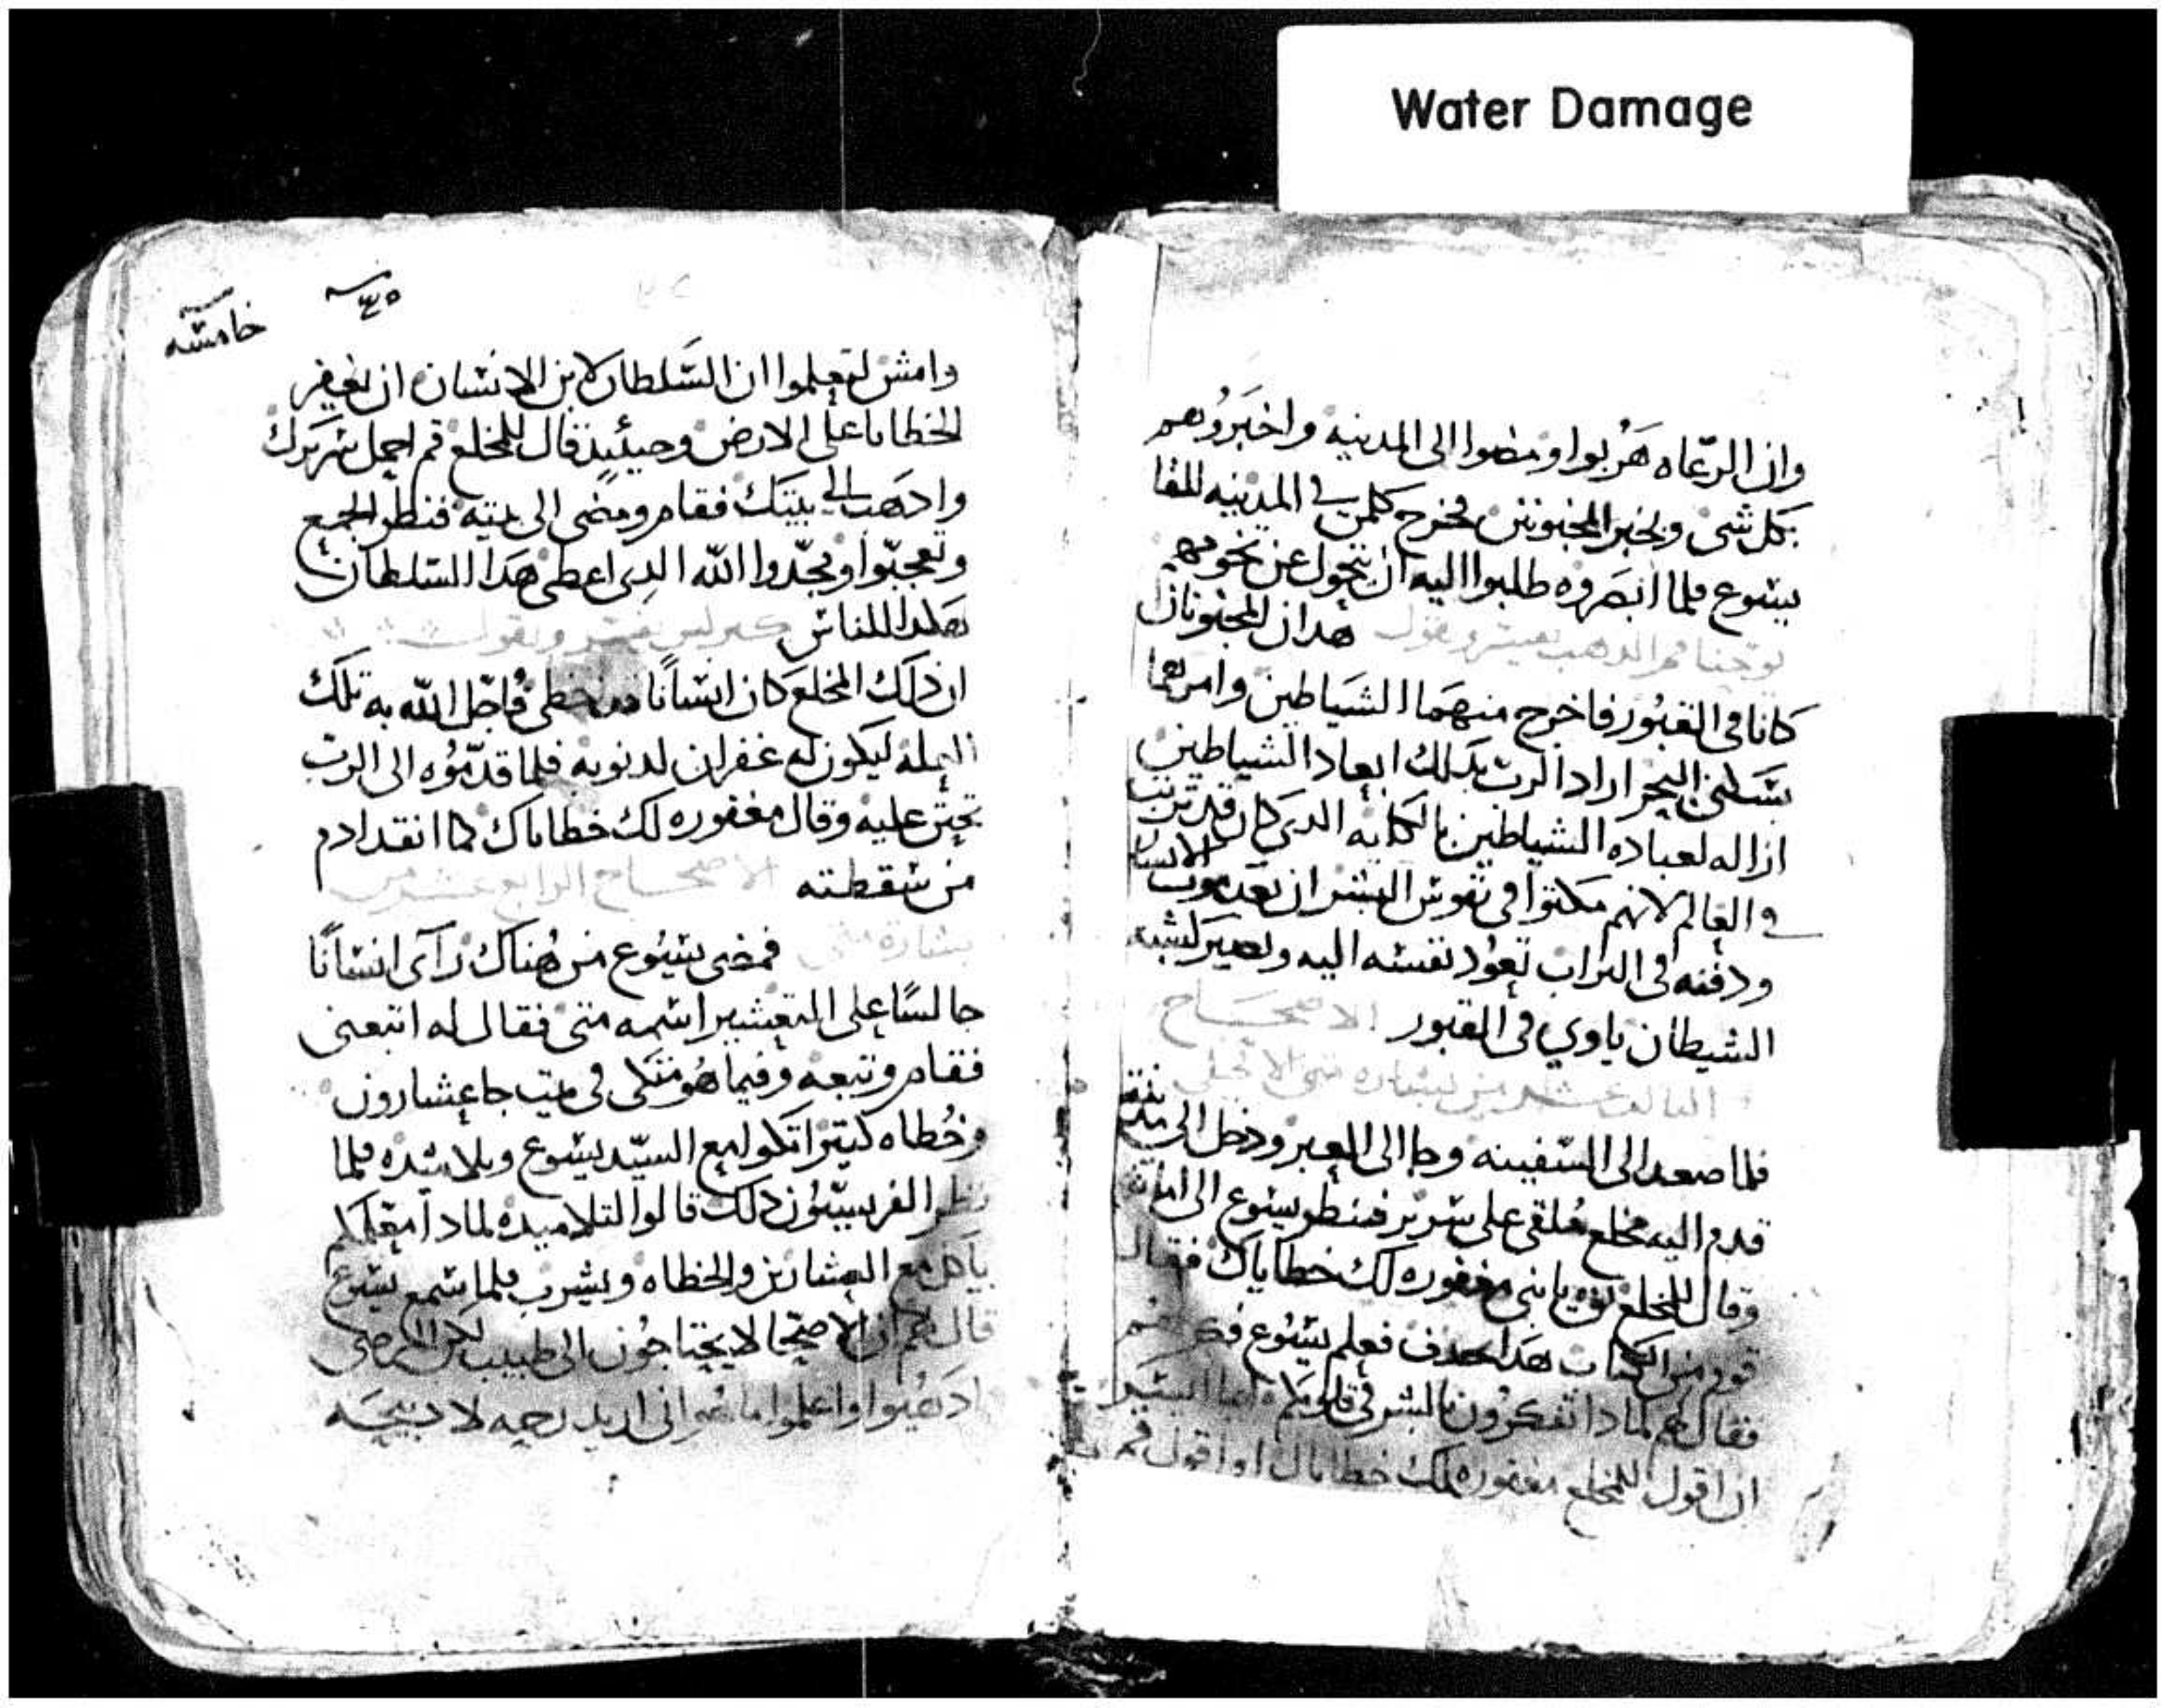 Water Damage
وان الرعاه هَربوا ومضوا الى المدينه واخبَرُوهم
بكل شى وبخبر المجنونين فخرج كلمن في المدينه للقا
يسوع فلما ابصَروه طلبوا اليه ان يتحول عن تخومهم
يوحنا فم الدهب يفسر ويقول هدان المجنونان
كانا فى القبُور فاخرج منهَما الشَياطين وامرهما
البحر اراد الرب بدلك ابعاد الشياطين
ازاله لعباده الشياطين الدى كان قد ترتب
في العالم لانهم مكتوا فى نفوس البشر ان بعد موت الانسان
ودفنه فى التراب تعوُد نفسه اليه وتصيَر
الشيطان ياوي فى القبور الاصحَاح
التالت عشر من بشاره متى الانجيلى
فلما صعد الى السَفينه وجا الى العبر ودخل الى مدينته
قدم اليه مخلع مُلقى على سرير فنظر يسوع الى
وقال للمخلع ثق يا بنى مغفوره لك خطاياك فقال
قوم من الكتاب هدا يجدف فعلم يسُوع فكرهم
فقال لهم لمادا تفكرُون بالشر فى قلوبكم
ان اقول للمخلع مغفوره لك خطاياك او اقول قم
٤٥
خامسه
وامش لتعلموا ان السَلطان لابن الانسان ان يغفر
الخطايا على الارض وحينيدٍ قال للمخلع قم احمل سَريرك
وادهَب الى بيتك فقام ومضى الى بيته فنظر الجمع
وتعجبّوا ومجّدوا الله الدِى اعطى هَدا السَلطان
هكدا للناس كيرلس يفسر ويقول
ان دلك المخلعَ كان انسَانًا خطى فاحّل الله به تلك
ليكون له غفران لدنوبه فلما قدّمُوه الى الرب
تحنن عليه وقال مغفوره لك خطاياك كما انقد ادم
من سَقطته الاصحَاح الرابع عشر من
بشارة متى فمضى يسُوع من هُناك راَى انسَانًا
جالسًا على التعشير اسَمه متى فقال له اتبعنى
فقام وتبعه وفيما هُو متكى فى بيت جا عشارون
وخُطاه كتيرا تكوا مع السيّد يسَوع وتلاميده فلما
نظر الفريسيّون دلك قالوا لتلاميده لمادا معلمكم
ياكل مع العشارين والخطاه ويشرب فلما سَمع يسَوع
قال لهم ان الاصحّا لا يحتاجُون الى طبيب لكن المرضى
ادهَبوا واعلموا ما هو انى اريد رحمه لا دبيحَه